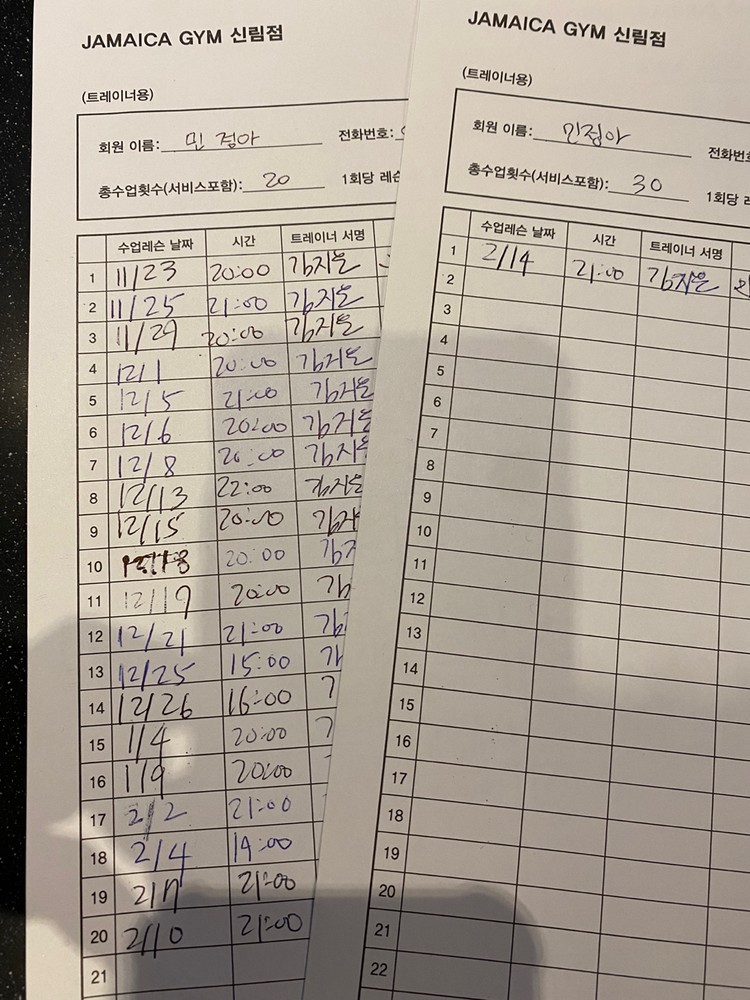 JAMAICA GYM 신림점
(트레이너용)
회원 이름: 민정아 전화번호:
총수업횟수(서비스포함): 20 1회당 레슨
수업레슨 날짜 시간 트레이너 서명
1 11/23 20:00 김지은
2 11/25 21:00 김지은
3 11/29 20:00 김지은
4 12/1 20:00 김지은
5 12/5 21:00 김지은
6 12/6 20:00 김지은
7 12/8 20:00 김지은
8 12/13 22:00 김지은
9 12/15 20:00 김지
10 12/18 20:00 김
11 12/19 20:00 김
12 12/21 21:00 김
13 12/25 15:00
14 12/26 16:00
15 1/4 20:00
16 1/9 20:00
17 2/2 21:00
18 2/4 19:00
19 2/7 21:00
20 2/10 21:00
21
JAMAICA GYM 신림점
(트레이너용)
회원 이름: 민정아 전화번
총수업횟수(서비스포함): 30 1회당 레
수업레슨 날짜 시간 트레이너 서명
1 2/14 21:00 김지은
2
3
4
5
6
7
8
9
10
11
12
13
14
15
16
17
18
19
20
21
22